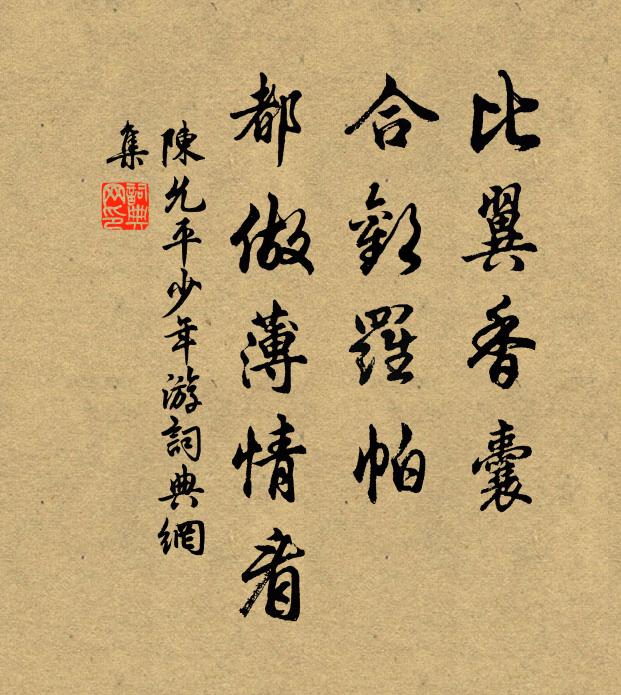 比翼香囊
合歡羅帕
都做薄情看
陳允平少年游詞典網
集
詞典网印